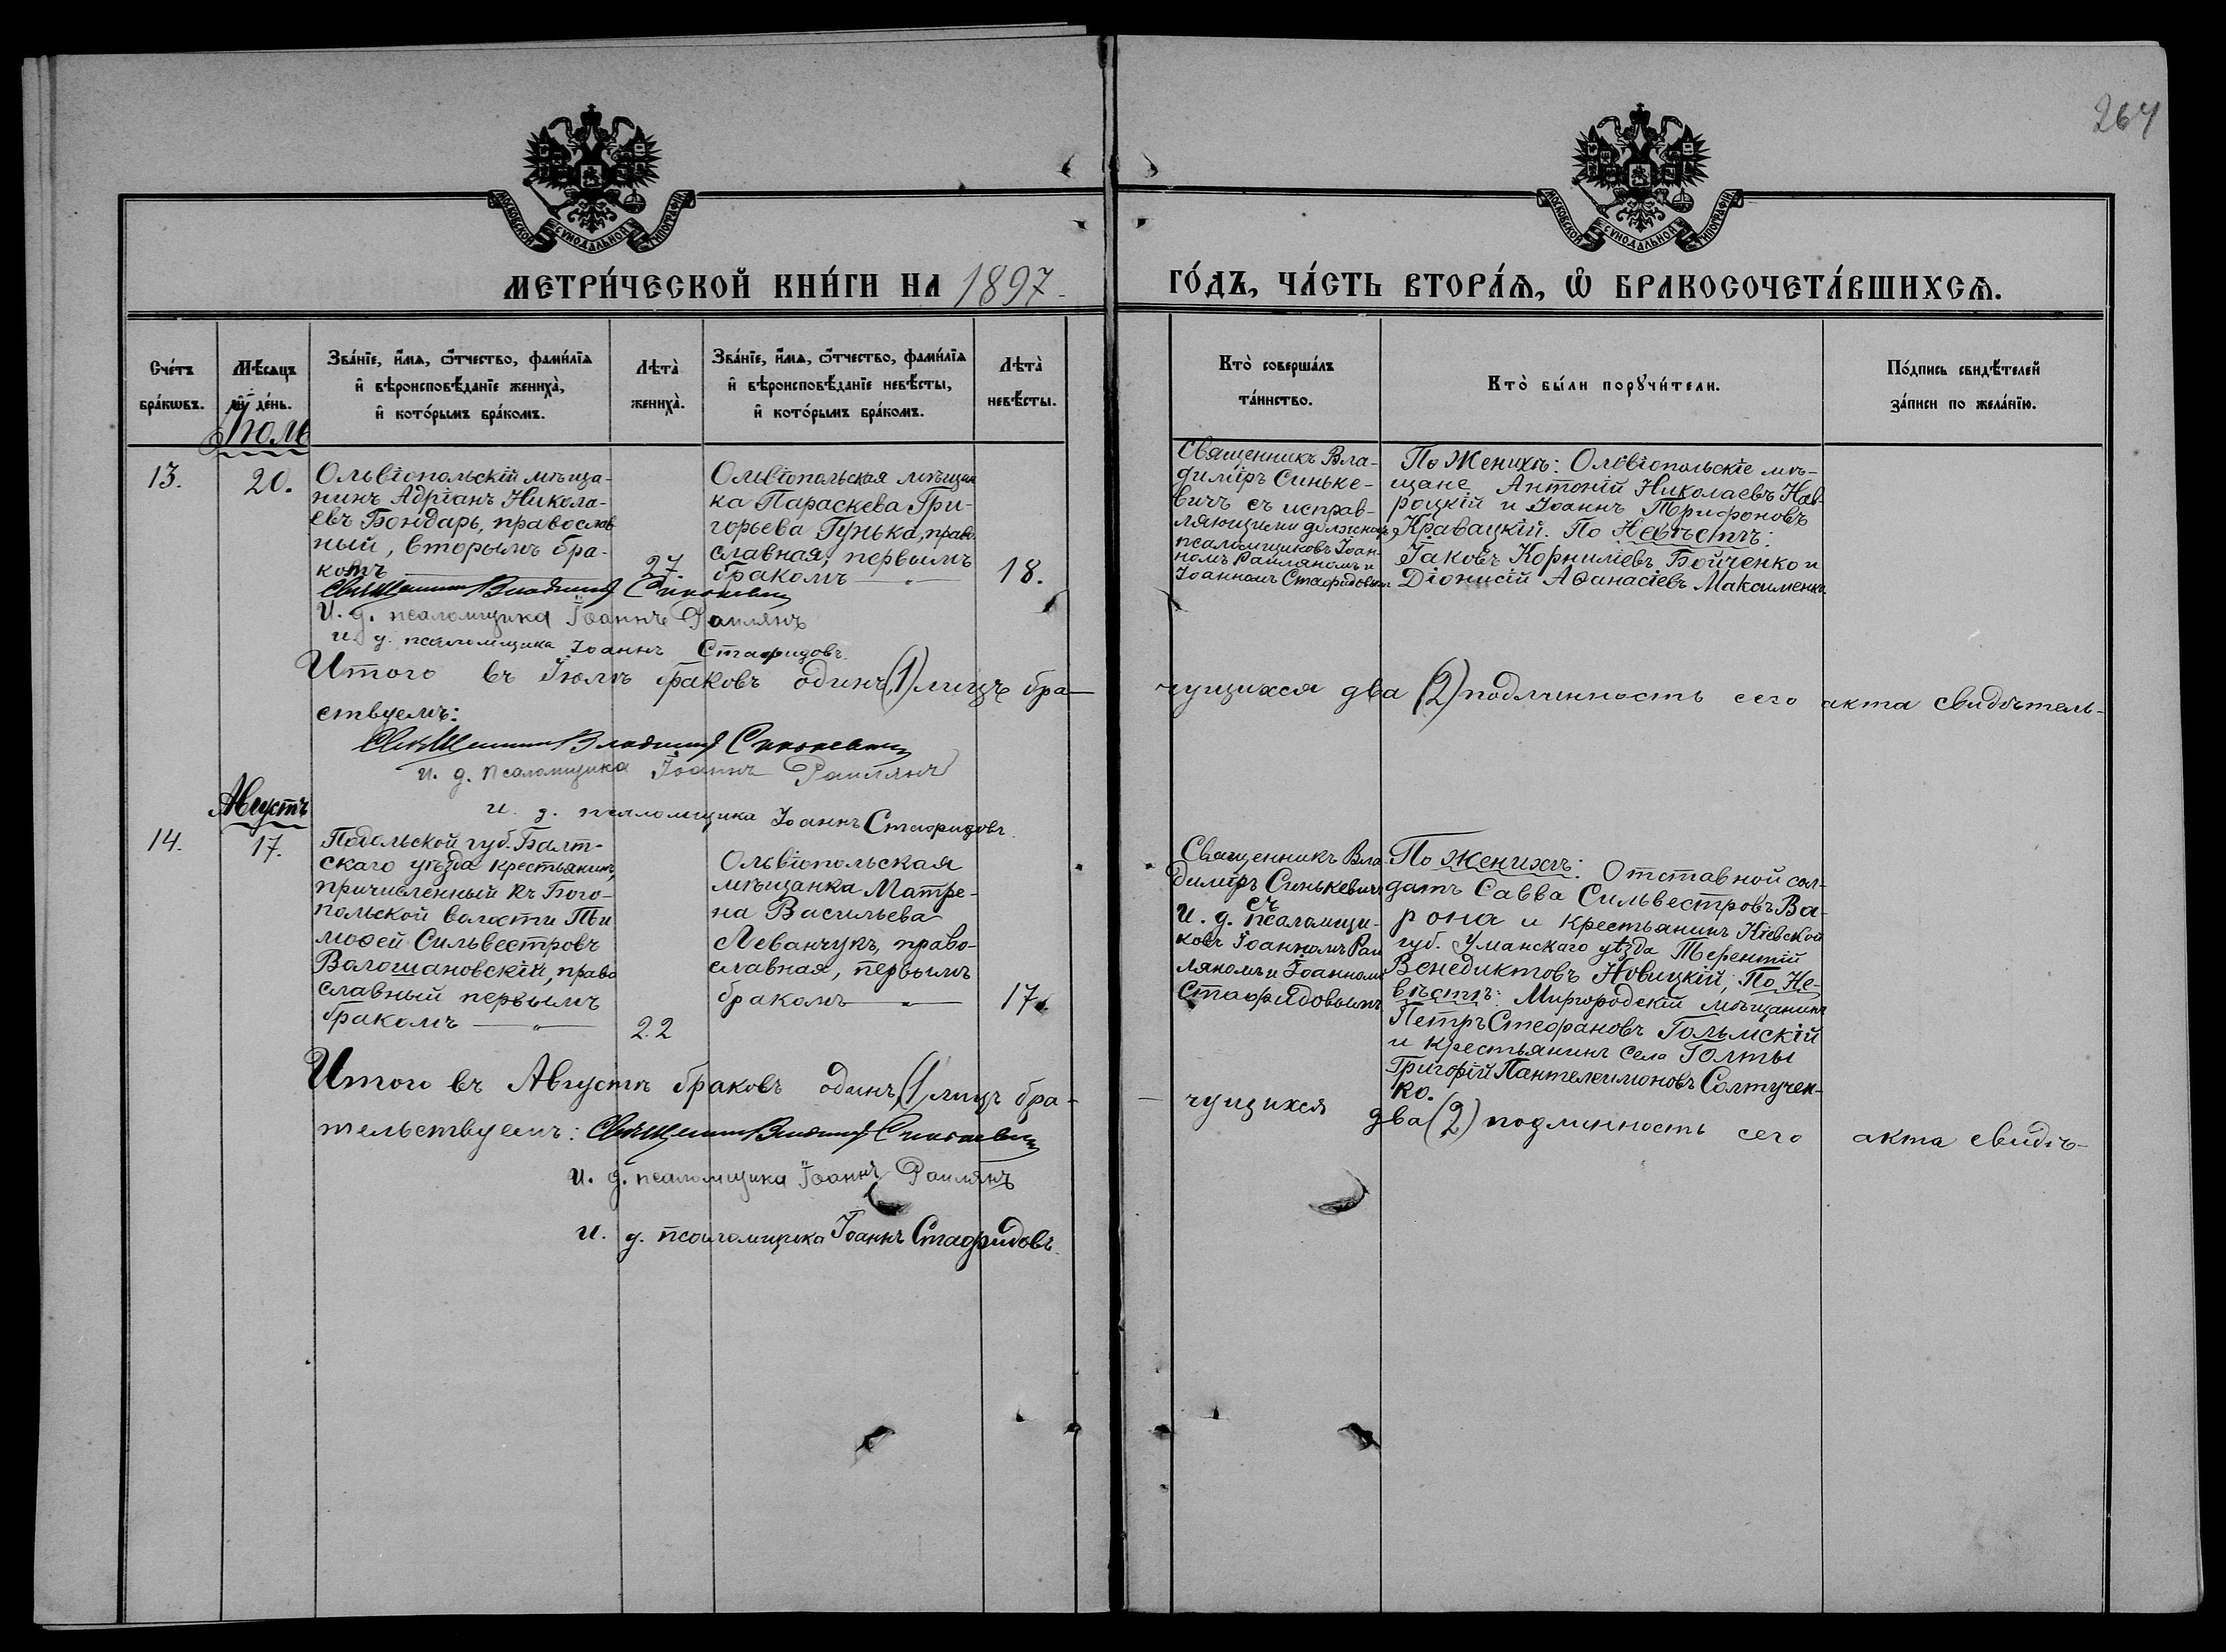 264
МОСКОВСКОЙ СУНОДАЛЬНОЙ ТИПОГРАФІИ
МОСКОВСКОЙ СУНОДАЛЬНОЙ ТИПОГРАФІИ
МЕТРИ́ЧЕСКОЙ КНИ́ГИ НА 1897
ГО́ДЪ, ЧА́СТЬ ВТОРА́Ѧ, Ѡ҆ БРАКОСОЧЕТА́ВШИХСѦ.
Сче́тъ
бра́кѡвъ.
Мѣ́сѧцъ
и҆ де́нь.
Зва́нїе, и҆́мѧ, ѻ҆́тчество, фами́лїѧ
и҆ вѣроисповѣ́данїе жениха̀,
и҆ кото́рымъ бра́комъ.
Лѣта̀
жениха̀.
Зва́нїе, и҆́мѧ, ѻ҆́тчество, фами́лїѧ
и҆ вѣроисповѣ́данїе невѣ́сты,
и҆ кото́рымъ бра́комъ.
Лѣта̀
невѣ́сты.
Кто̀ соверша́лъ
та́инство.
Кто̀ бы́ли порꙋчи́тели.
По́дпись свидѣ́телей
за́писи по жела́нїю.
Іюль
13.
20.
Ольвіопольскій мѣща-
нинъ Адріанъ Никола-
евъ Бондарь, православ
ный, вторымъ бра-
комъ
27.
Ольвіопольская мѣщан
ка Параскева Гри-
горьева Гунька, право
славная, первымъ
бракомъ
18.
Священникъ Вла-
димиръ Синьке-
вичъ съ исправ-
ляющими должность
псаломщиковъ Іоан-
номъ Раиляномъ и
Іоанномъ Стафидовымъ
По Женихѣ: Ольвіопольскіе мѣ-
щане Антоній Николаевъ Нав
роцкій и Іоаннъ Трифоновъ
Кравацкій. По Невѣстѣ:
Іаковъ Корниліевъ Бойченко и
Діонисій Аѳанасіевъ Максименко
Священникъ Владимиръ Синькевичъ
И. д. псаломщика Іоаннъ Раилянъ
и. д. псаломщика Іоаннъ Стафидовъ.
Итого въ Іюлѣ браковъ одинъ (1) лицъ бра-
чущихся два (2) подлинность сего акта свидѣтель-
ствуемъ:
Священникъ Владимиръ Синькевичъ
и. д. псаломщика Іоаннъ Раилянъ
и. д. псаломщика Іоаннъ Стафидовъ.
Августъ
14.
17.
Подольской губ. Балт-
скаго уѣзда крестьянинъ,
причисленный къ Бого-
польской волости Ти
моѳей Сильвестровъ
Волошановскій, право
славный первымъ
бракомъ
22
Ольвіопольская
мѣщанка Матре-
на Васильева
Леванчукъ, право-
славная, первымъ
бракомъ
17.
Священникъ Вла-
димиръ Синькевичъ
съ
и. д. псаломщи-
ковъ Іоанномъ Раи
ляномъ и Іоанномъ
Стафидовымъ
По Женихѣ: Отставной сол-
датъ Савва Сильвестровъ Ва-
рона и крестьянинъ Кіевской
губ. Уманскаго уѣзда Терентій
Венедиктовъ Новицкій; По Не-
вѣстѣ: Миргородскій мѣщанинъ
Петръ Стефановъ Гольмскій
и крестьянинъ села Голты
Григорій Пантелеимоновъ Солтучен-
ко.
Итого въ Августѣ браковъ одинъ (1) лицъ бра-
чущихся два (2) подлинность сего акта свидѣ-
тельствуемъ: Священникъ Владимиръ Синькевичъ
и. д. псаломщика Іоаннъ Раилянъ
и. д. псаломщика Іоаннъ Стафидовъ.